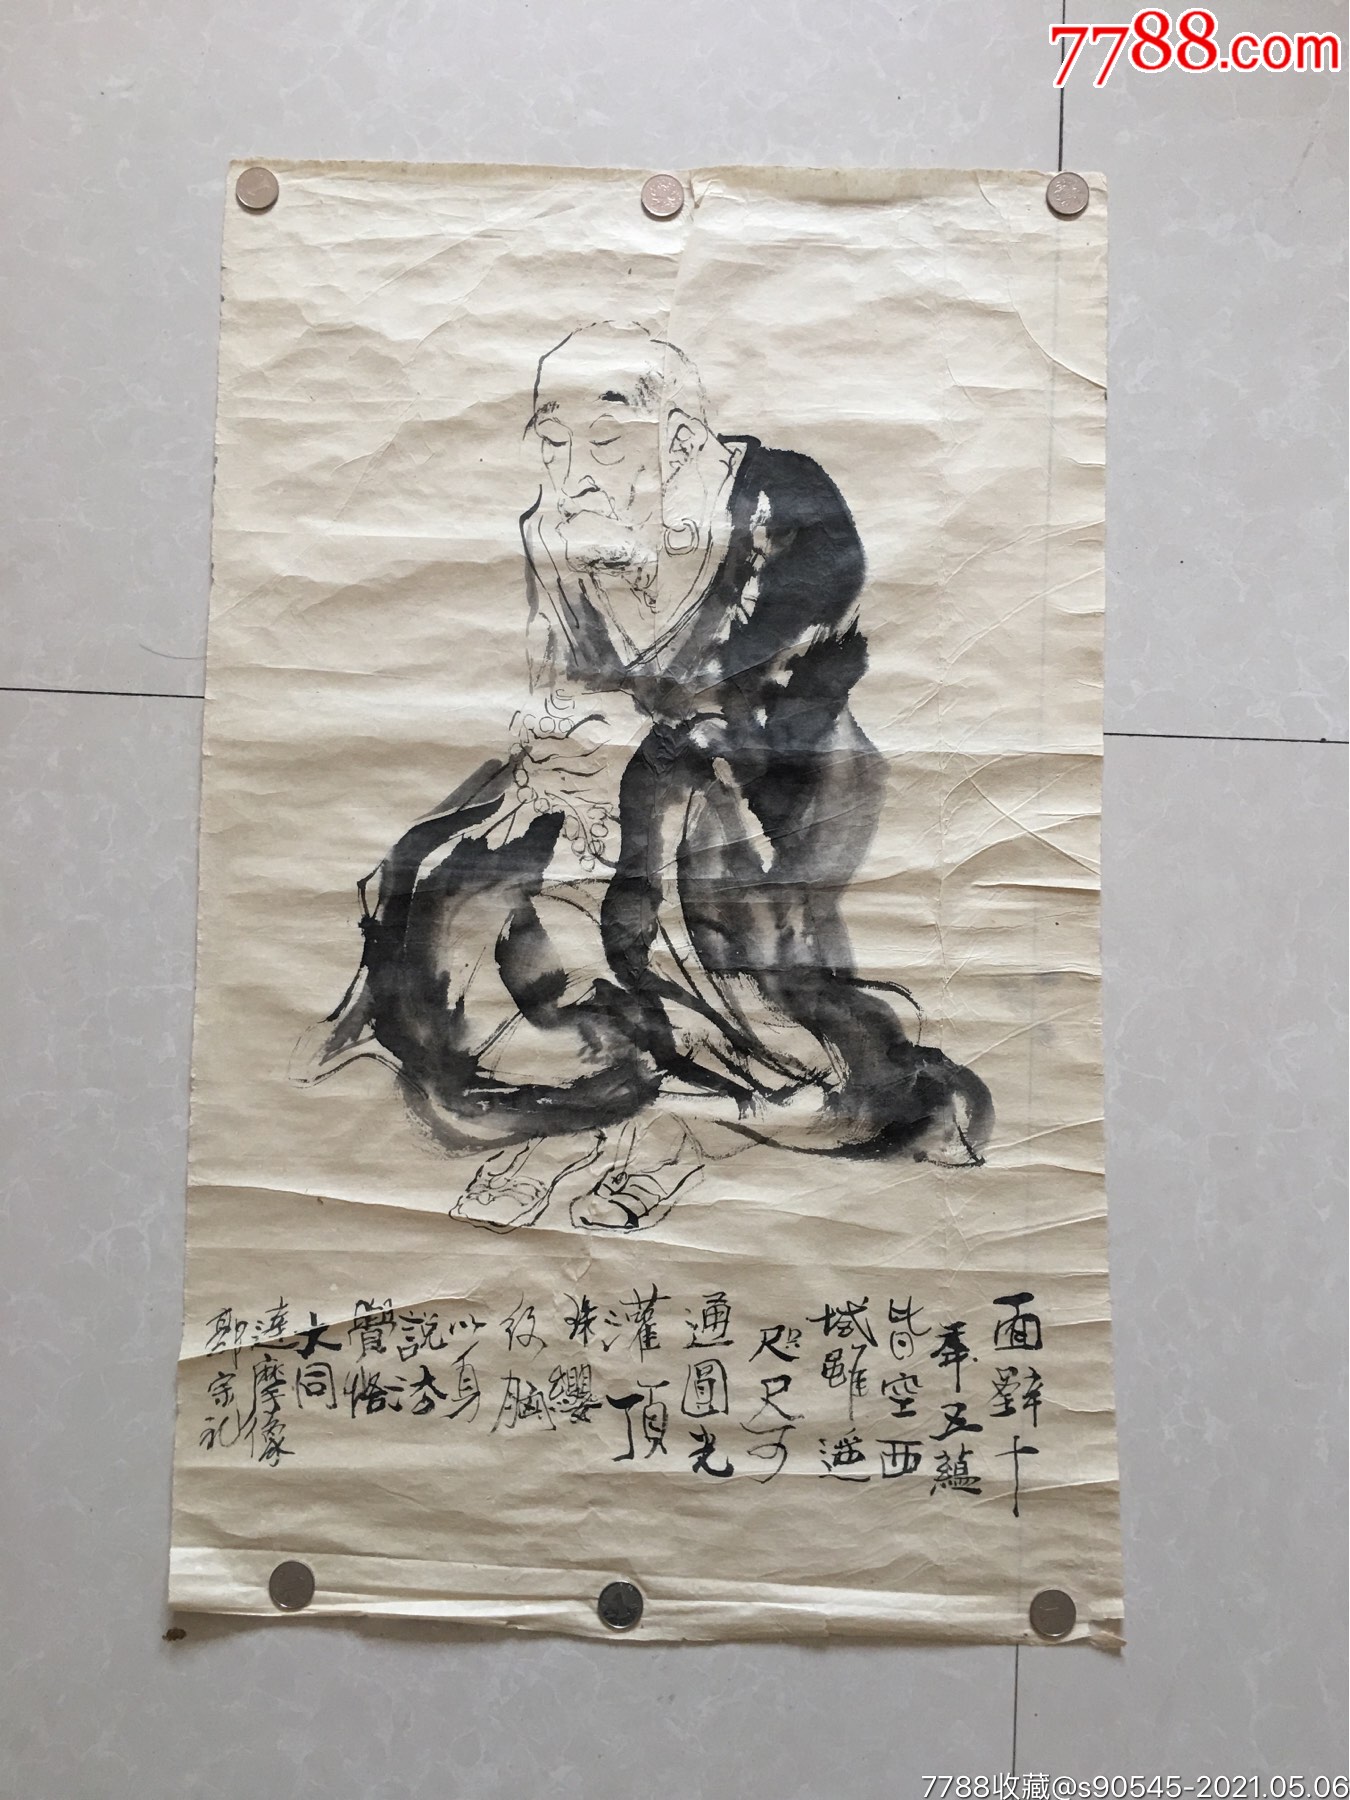 7788.com
面對十
年五蘊
皆空西
域雖遙
咫尺可
通圓光
灌頂
珠纓
絞胸
以身
說法
覺悟
大同
達摩像
郭宗礼
7788收藏@s90545-2021.05.06